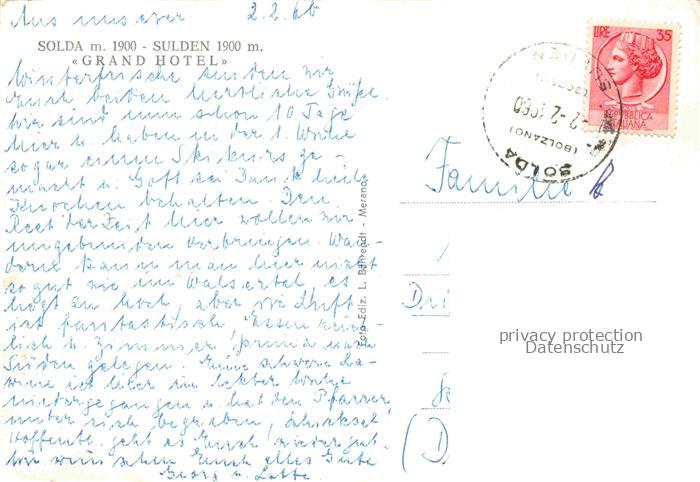 Aus unserer 2.2.60
SOLDA m. 1900 - SULDEN 1900 m.
«GRAND HOTEL»
Winterfrische senden wir
Euch beiden herzliche Grüße.
Wir sind nun schon 10 Tage
hier u. haben in der 1. Woche
sogar einen Skikurs ge-
macht u. Gott sei Dank heile
Knochen behalten. Den
Rest der Zeit hier wollen wir
ungebunden verbringen. Wan-
dern kann man hier nicht
so gut wie im Walsertal, es
liegt zu hoch, aber die Luft
ist fantastisch, Essen reich-
lich u. Zimmer prima nach
Süden gelegen. Eine schwere La-
wine ist hier in letzter Woche
niedergegangen u. hat den Pfarrer
unter sich begraben, Schicksal.
Hoffentl. geht es Euch wieder gut.
Wir wünschen Euch alles Gute
Georg u. Lotte
Foto-Ediz. L. Bährendt - Merano
LIRE 35
REPUBBLICA
ITALIANA
SULDEN
-2-2.1960
(BOLZANO)
SOLDA
Familie
privacy protection
Datenschutz
(D